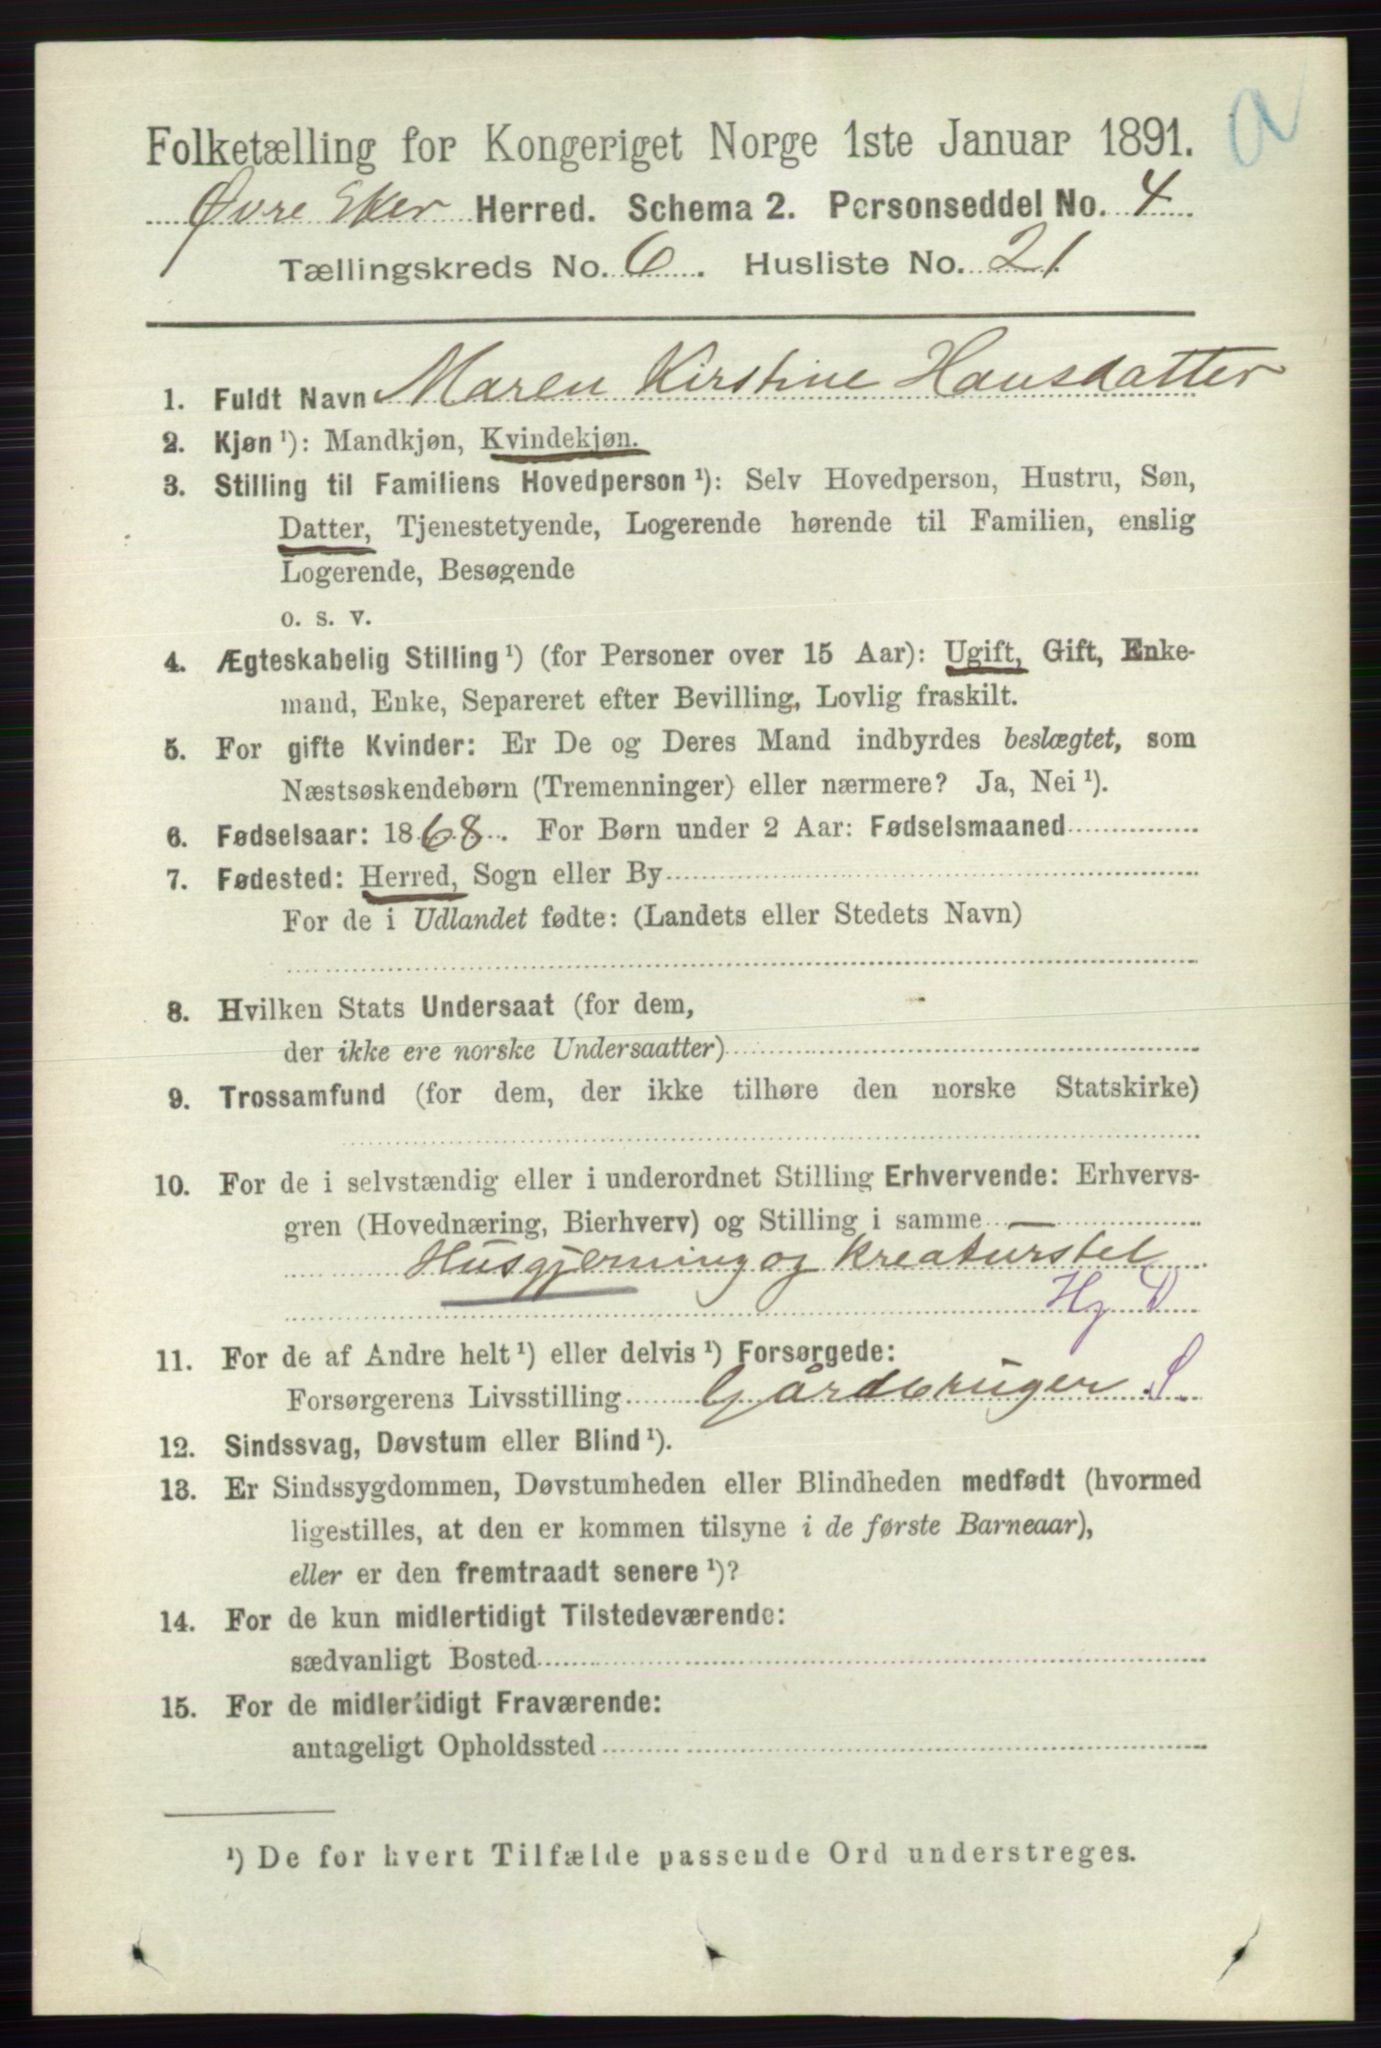 a
Folketælling for Kongeriget Norge 1ste Januar 1891.
Øvre Eker Herred. Schema 2. Personseddel No. 4
Tællingskreds No. 6. Husliste No. 21
1. Fuldt Navn Maren Kirstine Hansdatter
2. Kjøn ¹): Mandkjøn, Kvindekjøn.
3. Stilling til Familiens Hovedperson ¹): Selv Hovedperson, Hustru, Søn,
Datter, Tjenestetyende, Logerende hørende til Familien, enslig
Logerende, Besøgende
o. s. v.
4. Ægteskabelig Stilling ¹) (for Personer over 15 Aar): Ugift, Gift, Enke-
mand, Enke, Separeret efter Bevilling, Lovlig fraskilt.
5. For gifte Kvinder: Er De og Deres Mand indbyrdes beslægtet, som
Næstsøskendebørn (Tremenninger) eller nærmere? Ja, Nei ¹).
6. Fødselsaar: 1868. For Børn under 2 Aar: Fødselsmaaned
7. Fødested: Herred, Sogn eller By
For de i Udlandet fødte: (Landets eller Stedets Navn)
8. Hvilken Stats Undersaat (for dem,
der ikke ere norske Undersaatter)
9. Trossamfund (for dem, der ikke tilhøre den norske Statskirke)
10. For de i selvstændig eller i underordnet Stilling Erhvervende: Erhvervs-
gren (Hovednæring, Bierhverv) og Stilling i samme —
Husgjerning og kreaturstel
Hg D
11. For de af Andre helt ¹) eller delvis ¹) Forsørgede:
Forsørgerens Livsstilling Gårdbruger S
12. Sindssvag, Døvstum eller Blind ¹).
13. Er Sindssygdommen, Døvstumheden eller Blindheden medfødt (hvormed
ligestilles, at den er kommen tilsyne i de første Barneaar),
eller er den fremtraadt senere ¹)?
14. For de kun midlertidigt Tilstedeværende:
sædvanligt Bosted
15. For de midlertidigt Fraværende:
antageligt Opholdssted
¹) De for hvert Tilfælde passende Ord understreges.